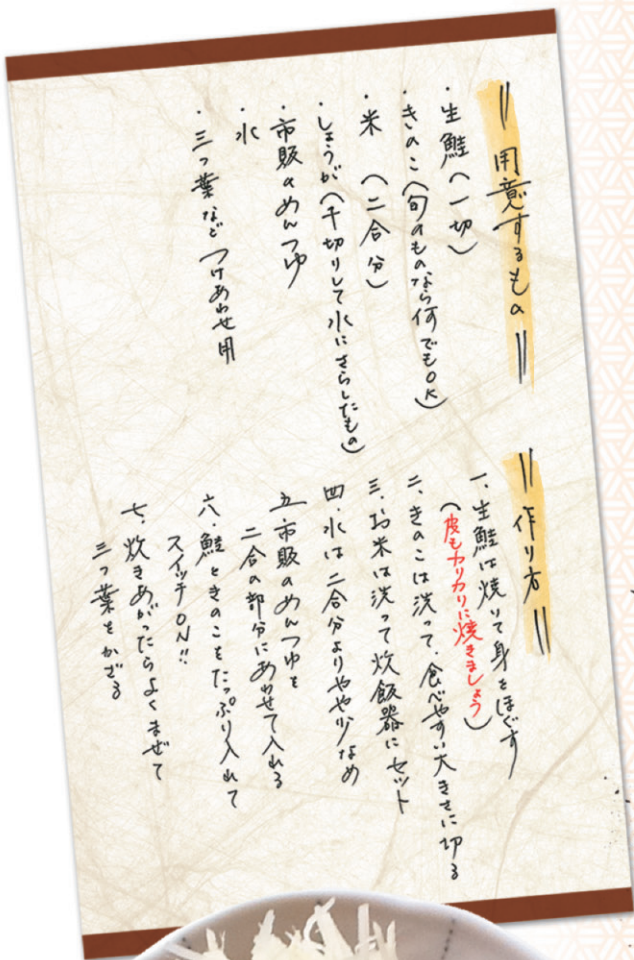 ＝用意するもの＝
・生鮭（一切）
・きのこ（旬のものなら何でもOK）
・米（二合分）
・しょうが（千切りして水にさらしたもの）
・市販のめんつゆ
・水
・三つ葉など つけあわせ用
＝作り方＝
一、生鮭は焼いて身をほぐす
（皮もカリカリに焼きましょう）
二、きのこは洗って、食べやすい大きさに切る
三、お米は洗って炊飯器にセット
四、水は二合分よりやや少なめ
五、市販のめんつゆを
二合の部分にあわせて入れる
六、鮭ときのこをたっぷり入れて
スイッチON!!
七、炊きあがったらよくまぜて
三つ葉をかざる